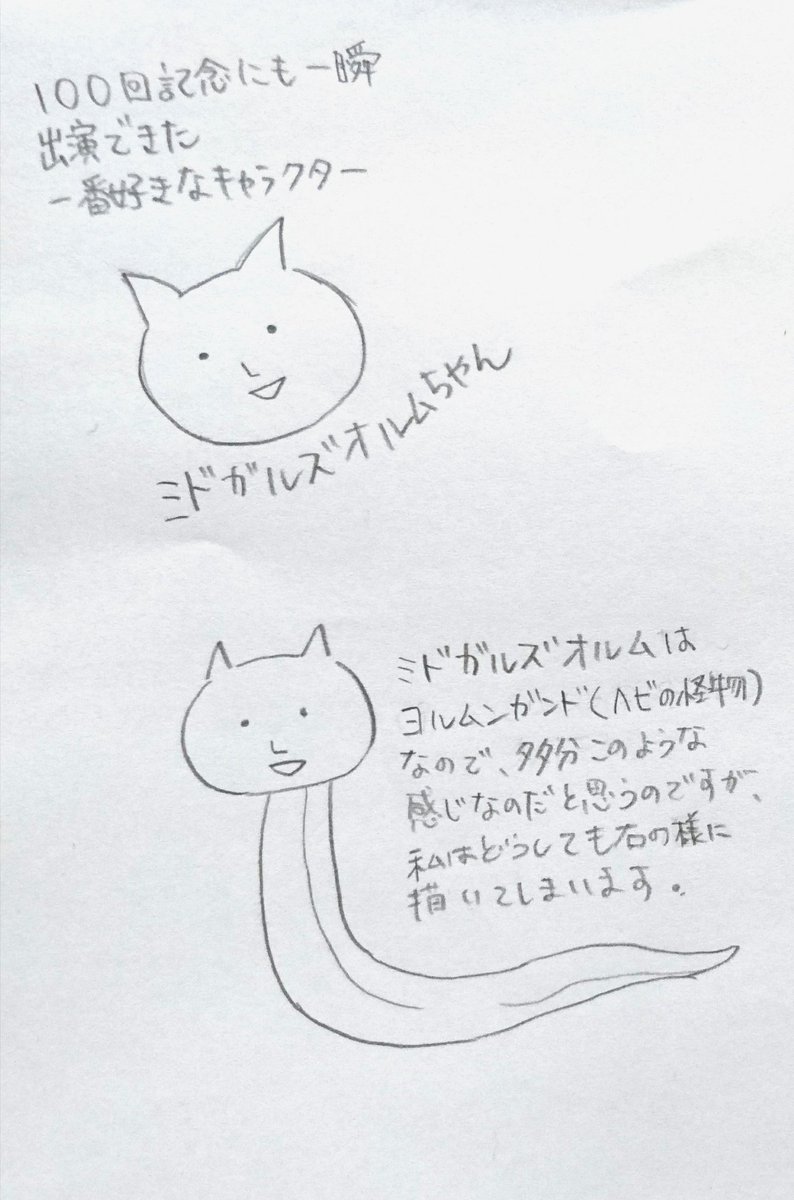 100回記念にも一瞬
出演できた
一番好きなキャラクター
ミドガルズオルムちゃん
ミドガルズオルムは
ヨルムンガンド(ヘビの怪物)
なので、多分このような
感じなのだと思うのですが、
私はどうしても右の様に
描いてしまいます。